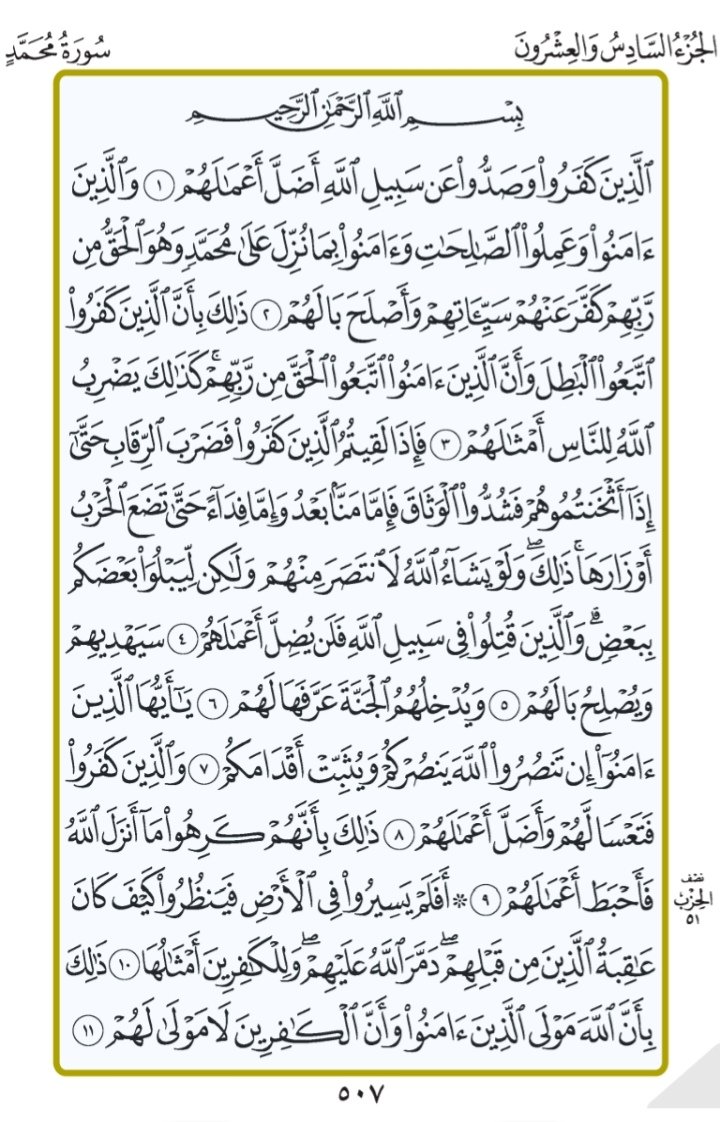 الجُزْءُ السَّادِسُ وَالعِشْرُونَ
سُورَةُ مُحَمَّدٍ
بِسْمِ ٱللَّهِ ٱلرَّحْمَٰنِ ٱلرَّحِيمِ
ٱلَّذِينَ كَفَرُوا۟ وَصَدُّوا۟ عَن سَبِيلِ ٱللَّهِ أَضَلَّ أَعْمَٰلَهُمْ ١ وَٱلَّذِينَ
ءَامَنُوا۟ وَعَمِلُوا۟ ٱلصَّٰلِحَٰتِ وَءَامَنُوا۟ بِمَا نُزِّلَ عَلَىٰ مُحَمَّدٍ وَهُوَ ٱلْحَقُّ مِن
رَّبِّهِمْ كَفَّرَ عَنْهُمْ سَيِّـَٔاتِهِمْ وَأَصْلَحَ بَالَهُمْ ٢ ذَٰلِكَ بِأَنَّ ٱلَّذِينَ كَفَرُوا۟
ٱتَّبَعُوا۟ ٱلْبَٰطِلَ وَأَنَّ ٱلَّذِينَ ءَامَنُوا۟ ٱتَّبَعُوا۟ ٱلْحَقَّ مِن رَّبِّهِمْ ۚ كَذَٰلِكَ يَضْرِبُ
ٱللَّهُ لِلنَّاسِ أَمْثَٰلَهُمْ ٣ فَإِذَا لَقِيتُمُ ٱلَّذِينَ كَفَرُوا۟ فَضَرْبَ ٱلرِّقَابِ حَتَّىٰٓ
إِذَآ أَثْخَنتُمُوهُمْ فَشُدُّوا۟ ٱلْوَثَاقَ فَإِمَّا مَنًّۢا بَعْدُ وَإِمَّا فِدَآءً حَتَّىٰ تَضَعَ ٱلْحَرْبُ
أَوْزَارَهَا ۚ ذَٰلِكَ ۖ وَلَوْ يَشَآءُ ٱللَّهُ لَٱنتَصَرَ مِنْهُمْ وَلَٰكِن لِّيَبْلُوَا۟ بَعْضَكُم
بِبَعْضٍ ۗ وَٱلَّذِينَ قُتِلُوا۟ فِى سَبِيلِ ٱللَّهِ فَلَن يُضِلَّ أَعْمَٰلَهُمْ ٤ سَيَهْدِيهِمْ
وَيُصْلِحُ بَالَهُمْ ٥ وَيُدْخِلُهُمُ ٱلْجَنَّةَ عَرَّفَهَا لَهُمْ ٦ يَٰٓأَيُّهَا ٱلَّذِينَ
ءَامَنُوٓا۟ إِن تَنصُرُوا۟ ٱللَّهَ يَنصُرْكُمْ وَيُثَبِّتْ أَقْدَامَكُمْ ٧ وَٱلَّذِينَ كَفَرُوا۟
فَتَعْسًا لَّهُمْ وَأَضَلَّ أَعْمَٰلَهُمْ ٨ ذَٰلِكَ بِأَنَّهُمْ كَرِهُوا۟ مَآ أَنزَلَ ٱللَّهُ
فَأَحْبَطَ أَعْمَٰلَهُمْ ٩ ۞ أَفَلَمْ يَسِيرُوا۟ فِى ٱلْأَرْضِ فَيَنظُرُوا۟ كَيْفَ كَانَ
نصف
الحِزْب
٥١
عَٰقِبَةُ ٱلَّذِينَ مِن قَبْلِهِمْ ۖ دَمَّرَ ٱللَّهُ عَلَيْهِمْ ۖ وَلِلْكَٰفِرِينَ أَمْثَٰلُهَا ١٠ ذَٰلِكَ
بِأَنَّ ٱللَّهَ مَوْلَى ٱلَّذِينَ ءَامَنُوا۟ وَأَنَّ ٱلْكَٰفِرِينَ لَا مَوْلَىٰ لَهُمْ ١١
٥٠٧